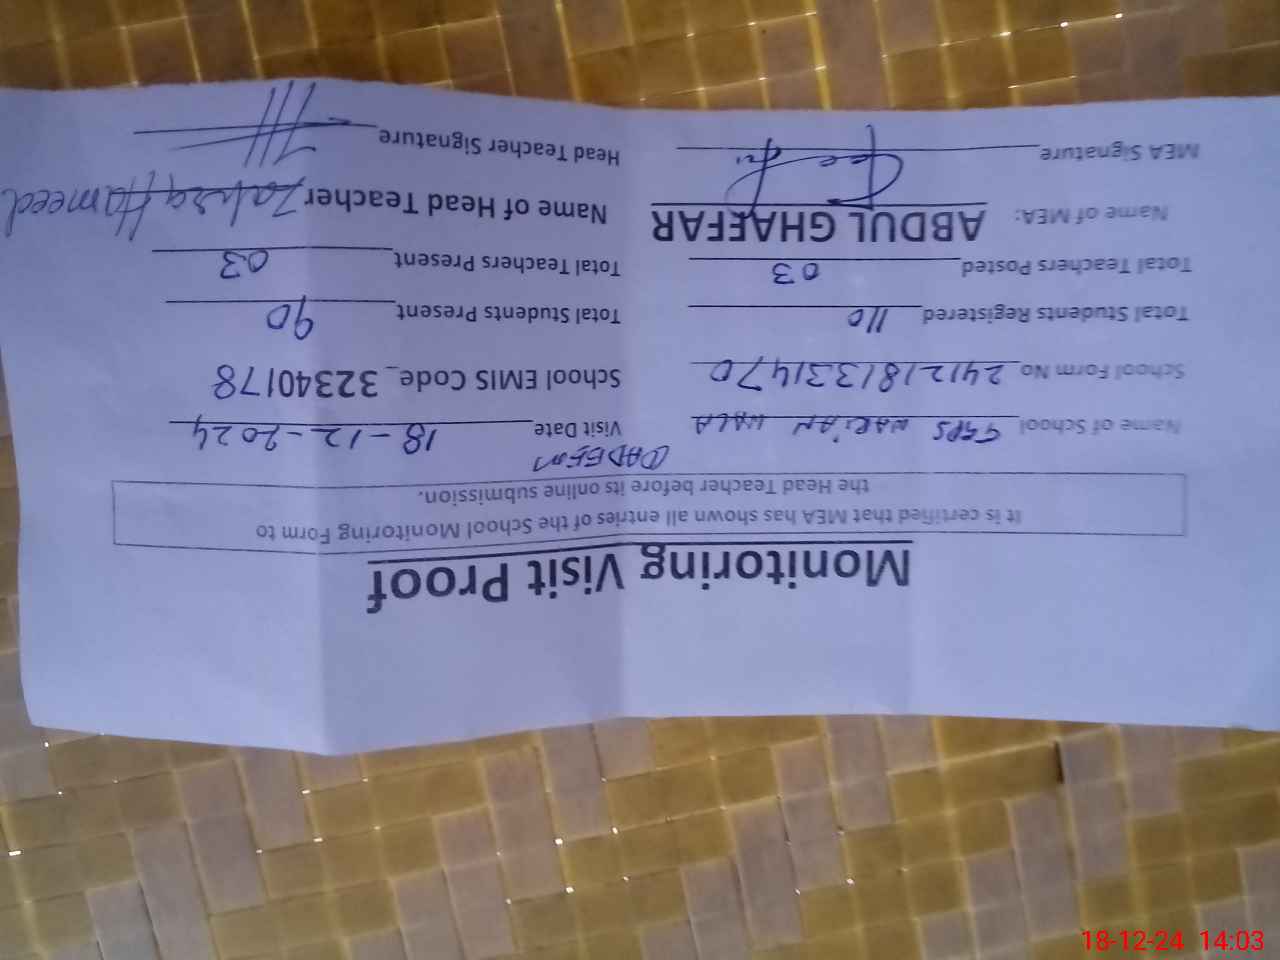 Monitoring Visit Proof
It is certified that MEA has shown all entries of the School Monitoring Form to
the Head Teacher before its online submission.
Name of School GGPS WARI'AN WALA QADEEM Visit Date 18-12-2024
School Form No 2412181331470 School EMIS Code_ 32340178
Total Students Registered 110 Total Students Present 90
Total Teachers Posted 03 Total Teachers Present 03
Name of MEA: ABDUL GHAFFAR Name of Head Teacher Zahra Hameed
MEA Signature Head Teacher Signature
18-12-24 14:03